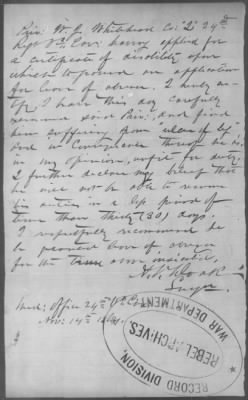 Priv: W. J. Whitehead Co: "D" 24th
Regt Va Cav: having applied for
a certificate of disability upon
which to ground an application
for leave of absence. I do certify
I have this day carefully
examined said Priv: and find
him suffering from ulcer of leg
and in consequence thereof he is,
in my opinion, unfit for duty.
I further declare my belief that
he will not be able to resume
his duties in a less period of
time than thirty (30) days.
I respectfully recommend he
be granted leave of absence
for the time above indicated.
Surgn.
Med: Office 24th Va Cav
Nov: 14th 1864
RECORD DIVISION,
REBEL ARCHIVES,
WAR DEPARTMENT